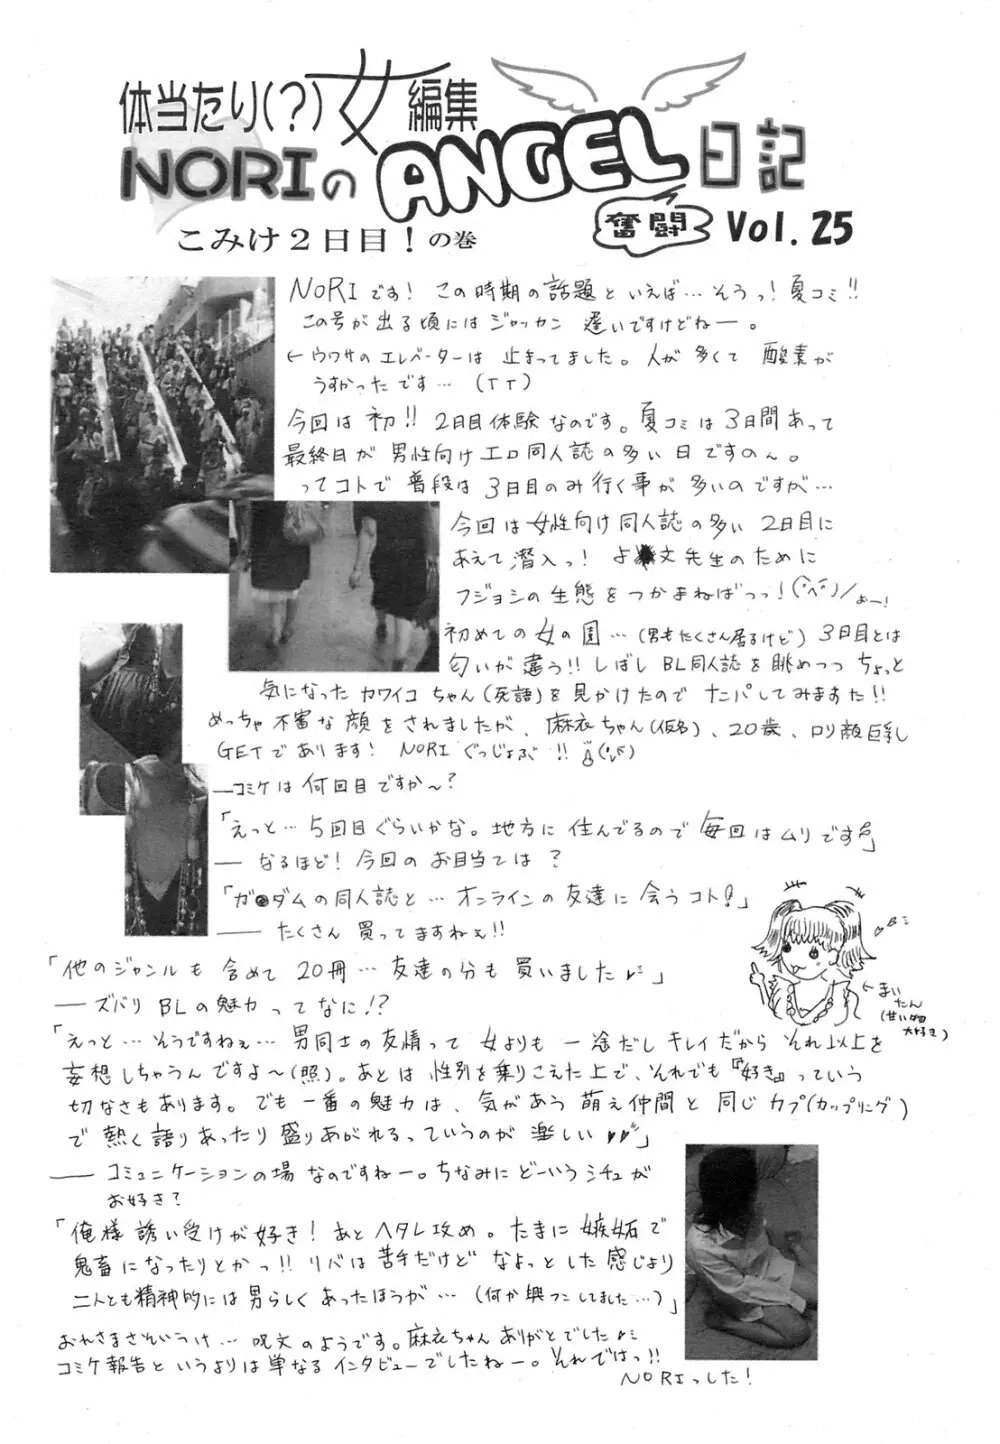 体当たり(？)女編集
NORIのANGEL日記
奮闘 Vol.25
こみけ2日目！の巻
NORIです！この時期の話題といえば…そうっ！夏コミ!!
この号が出る頃にはジャッカン遅いですけどねー。
←ウワサのエレベーターは止まってました。人が多くて酸素が
うすかったです…(TT)
今回は初!!2日目体験なのです。夏コミは3日間あって
最終日が男性向けエロ同人誌の多い日ですの〜。
ってコトで普段は3日目のみ行く事が多いのですが…
今回は女性向け同人誌の多い2日目に
あえて潜入っ！よ文先生のために
フジョシの生態をつかまねばっっ！
初めての女の園…(男もたくさん居るけど)3日目とは
匂いが違う!!しばしBL同人誌を眺めつつちょっと
気になったカワイコちゃん(死語)を見かけたのでナンパしてみますた!!
めっちゃ不審な顔をされましたが、麻衣ちゃん(仮名)、20歳、ロリ顔巨乳
GETであります！NORIぐっじょぶ!!
―コミケは何回目ですか〜？
「えっと…5回目ぐらいかな。地方に住んでるので毎回はムリです」
―なるほど！今回のお目当ては？
「ガ●ダムの同人誌と…オンラインの友達に会うコト！」
―たくさん買ってますねぇ!!
「他のジャンルも含めて20冊…友達の分も買いました♪」
―ズバリBLの魅力ってなに!?
←まい
たん
(甘い物
大好き)
「えっと…そうですねぇ…男同士の友情って女よりも一途だしキレイだからそれ以上を
妄想しちゃうんですよ〜(照)。あとは性別を乗りこえた上で、それでも『好き』っていう
切なさもあります。でも一番の魅力は、気があう萌え仲間と同じカプ(カップリング)
で熱く語りあったり盛りあがれるっていうのが楽しい♥♥」
―コミュニケーションの場なのですねー。ちなみにどーいうシチュが
お好き？
「俺様誘い受けが好き！あとヘタレ攻め。たまに嫉妬で
鬼畜になったりとかっ!!リバは苦手だけどなよっとした感じより
二人とも精神的には男らしくあったほうが…(何か興フンしてました…)」
おれさまさそいうけ…呪文のようです。麻衣ちゃんありがとでした♪
コミケ報告というよりは単なるインタビューでしたねー。それではっ!!
NORIっした！